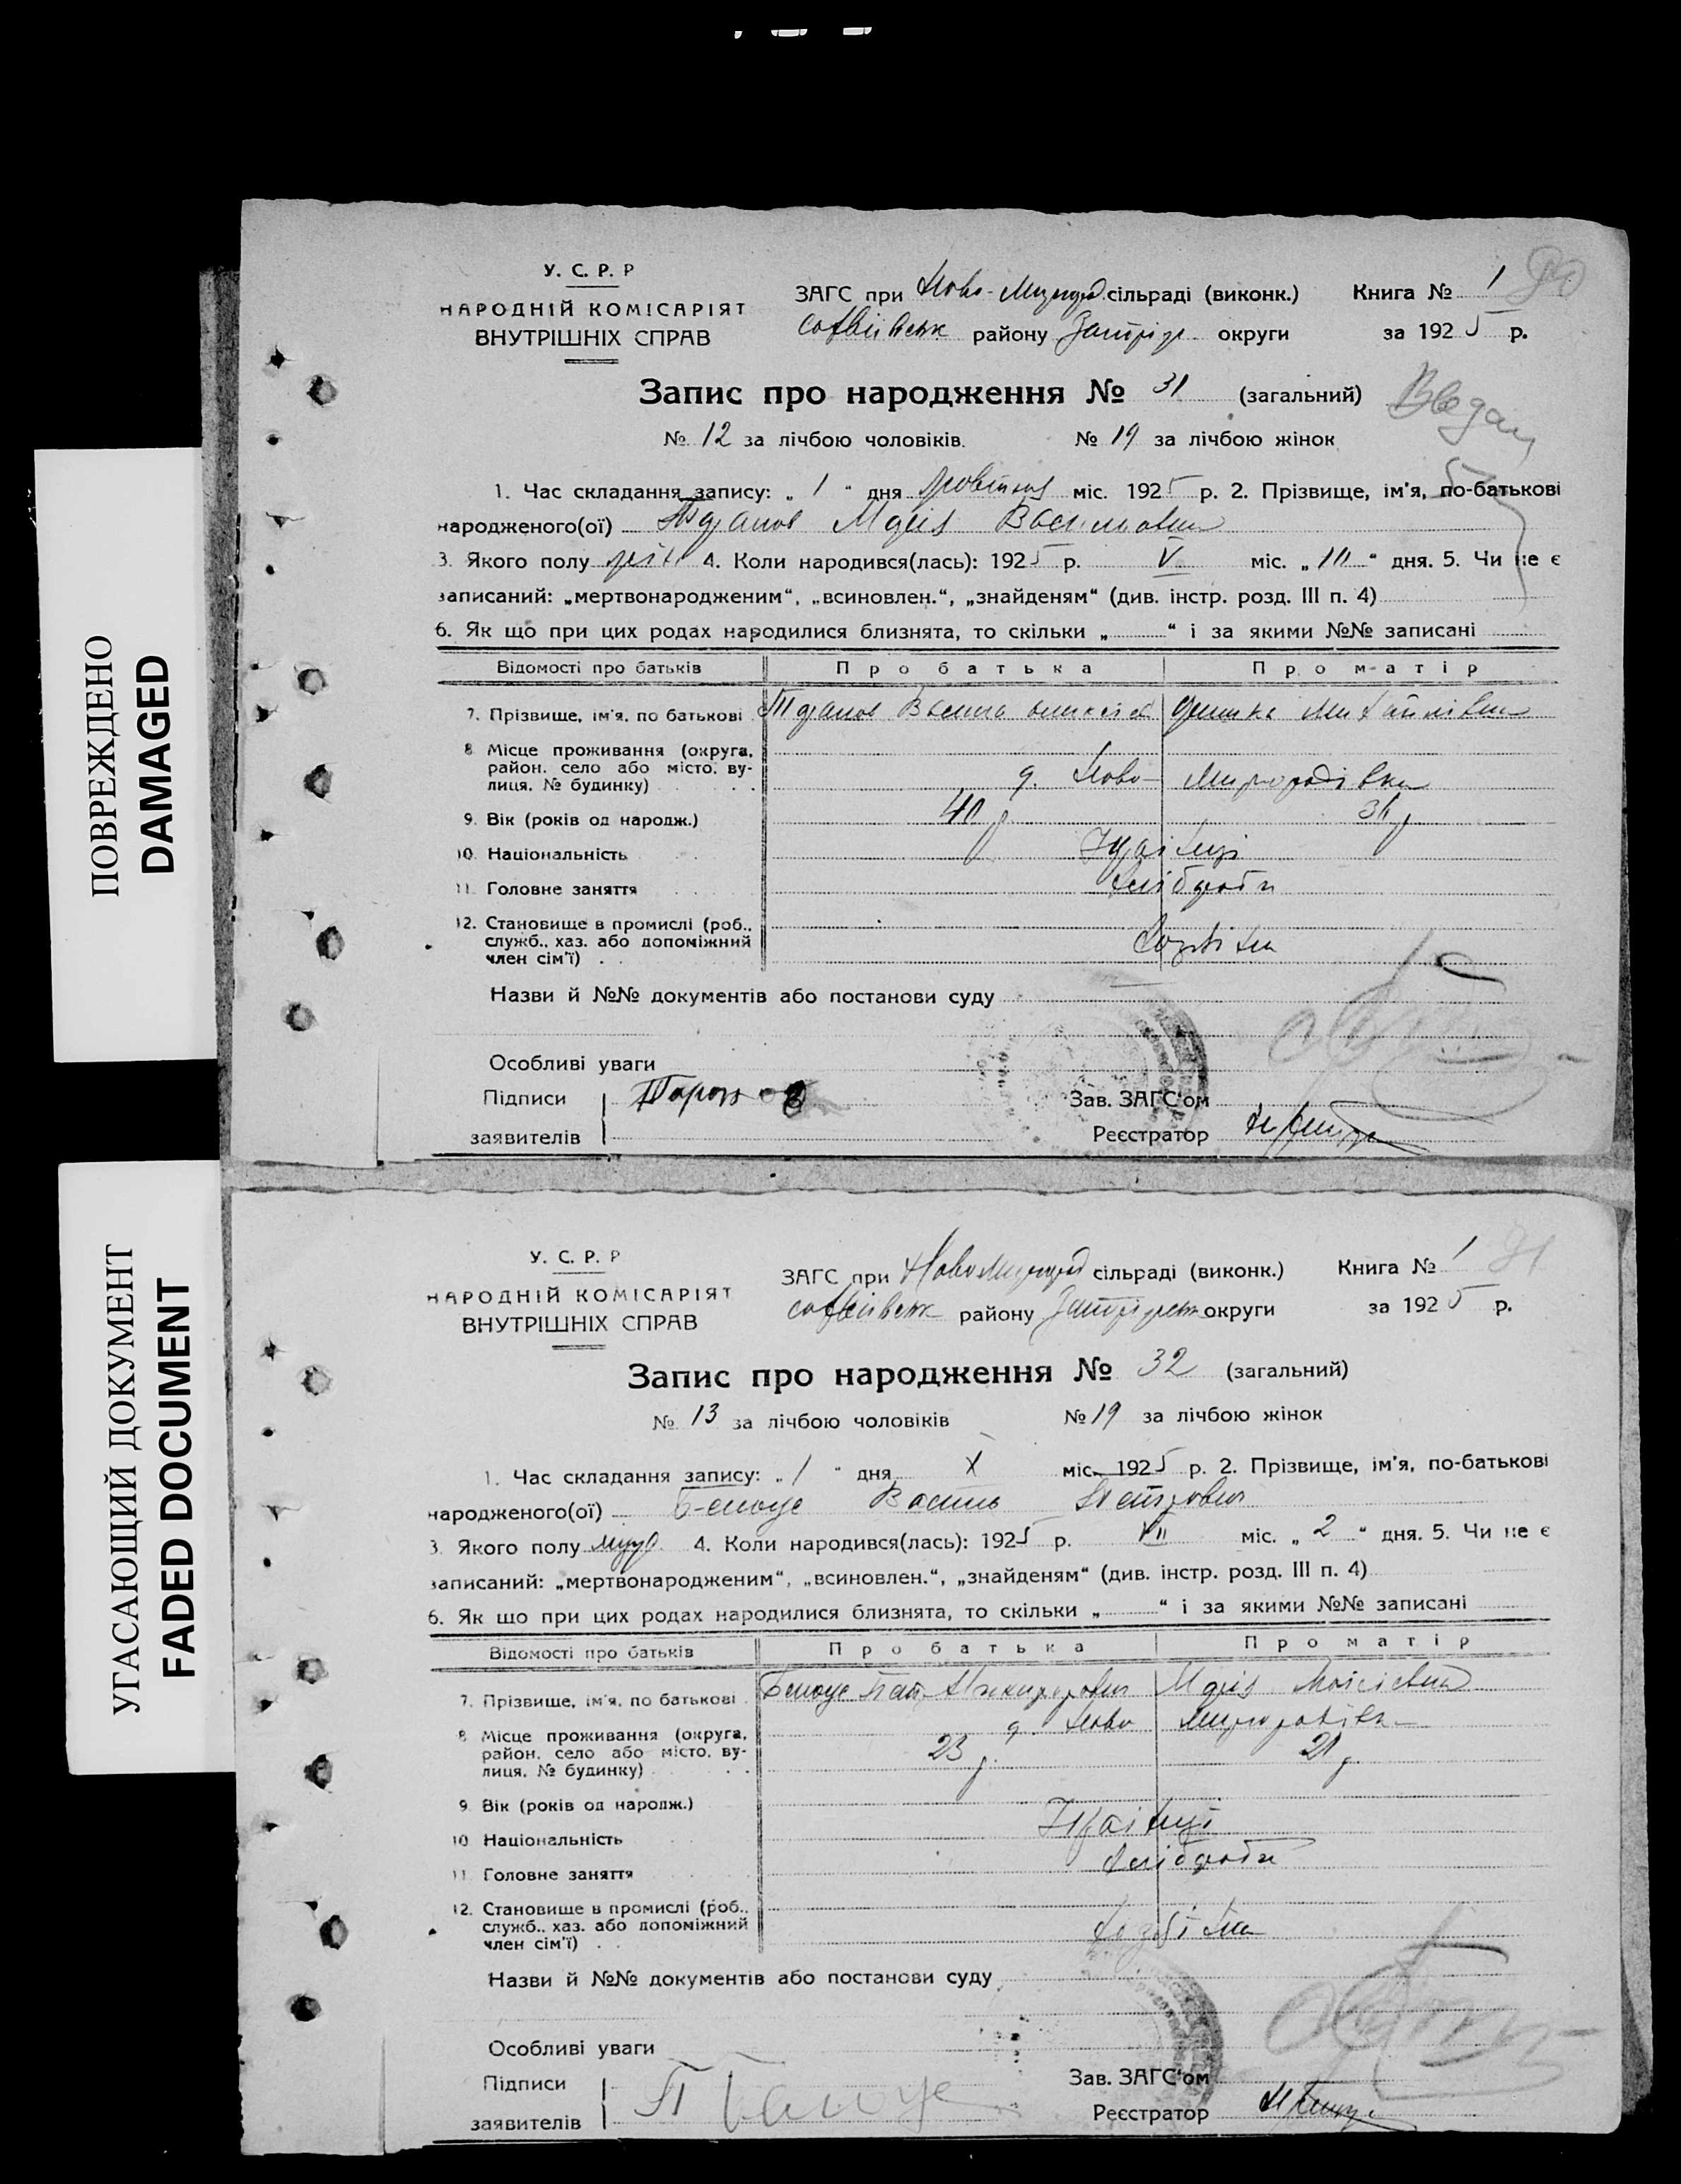 ПОВРЕЖДЕНО
DAMAGED
УГАСАЮЩИЙ ДОКУМЕНТ
FADED DOCUMENT
У. С. Р. Р
НАРОДНІЙ КОМІСАРІЯТ
ВНУТРІШНІХ СПРАВ
ЗАГС при Ново-Миргород. сільраді (виконк.) Книга № 1
Софіївськ району Запоріз. округи за 1925 р.
Запис про народження № 31 (загальний)
№ 12 за лічбою чоловіків. № 19 за лічбою жінок
1. Час складання запису: „ 1 " дня жовтня міс. 1925 р. 2. Прізвище, ім'я, по-батькові
народженого(ої) Марія Василівна
3. Якого полу жін 4. Коли народився(лась): 1925 р. V міс. „ 10 " дня. 5. Чи не є
записаний: „мертвонародженим“, „всиновлен.“, „знайденям“ (див. інстр. розд. III п. 4)
6. Як що при цих родах народилися близнята, то скільки „ “ і за якими №№ записані
Відомості про батьків Про батька Про матір
7. Прізвище, ім'я, по батькові Василь Михайлівна
8 Місце проживання (округа, район, село або місто, вулиця, № будинку) Ново-Миргородівка
9. Вік (років од народж.) 40 р 36 р
10. Національність Українці
11. Головне заняття хлібороби
12. Становище в промислі (роб., служб., хаз. або допоміжний член сім'ї)
Назви й №№ документів або постанови суду
Особливі уваги
Підписи
заявителів
Зав. ЗАГС'ом
Реєстратор
У. С. Р. Р
НАРОДНІЙ КОМІСАРІЯТ
ВНУТРІШНІХ СПРАВ
ЗАГС при Ново Миргород сільраді (виконк.) Книга № 1
Софіївськ району Запорізьк округи за 1925 р.
Запис про народження № 32 (загальний)
№ 13 за лічбою чоловіків № 19 за лічбою жінок
1. Час складання запису: „ 1 " дня X міс. 1925 р. 2. Прізвище, ім'я, по-батькові
народженого(ої) Белоус Василь Петрович
3. Якого полу муж. 4. Коли народився(лась): 1925 р. VII міс. „ 2 “ дня. 5. Чи не є
записаний: „мертвонародженим“, „всиновлен.“, „знайденям“ (див. інстр. розд. III п. 4)
6. Як що при цих родах народилися близнята, то скільки „ “ і за якими №№ записані
Відомості про батьків Про батька Про матір
7. Прізвище, ім'я, по батькові Белоус Пет. Марія Мойсієвна
8 Місце проживання (округа, район, село або місто, вулиця, № будинку) Ново Миргородівк
23 р. 21 р.
9 Вік (років од народж.)
10 Національність Українці
11 Головне заняття хлібороби
12. Становище в промислі (роб., служб., хаз. або допоміжний член сім'ї)
Назви й №№ документів або постанови суду
Особливі уваги
Підписи
заявителів
Зав. ЗАГС'ом
Реєстратор